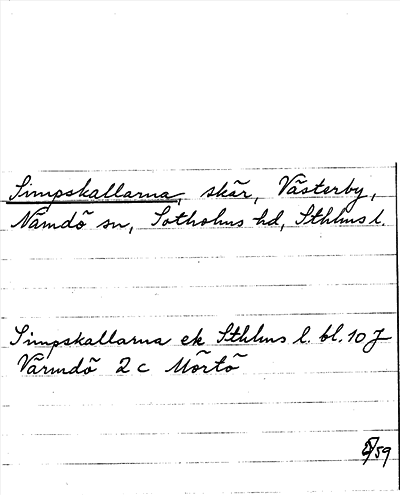 Simpskallarna, skär, Västerby,
Nämdö sn, Sotholms hd, Sthlms l.
Simpskallarna ek Sthlms l. bl. 10 J
Värmdö 2 c Mörtö
/59